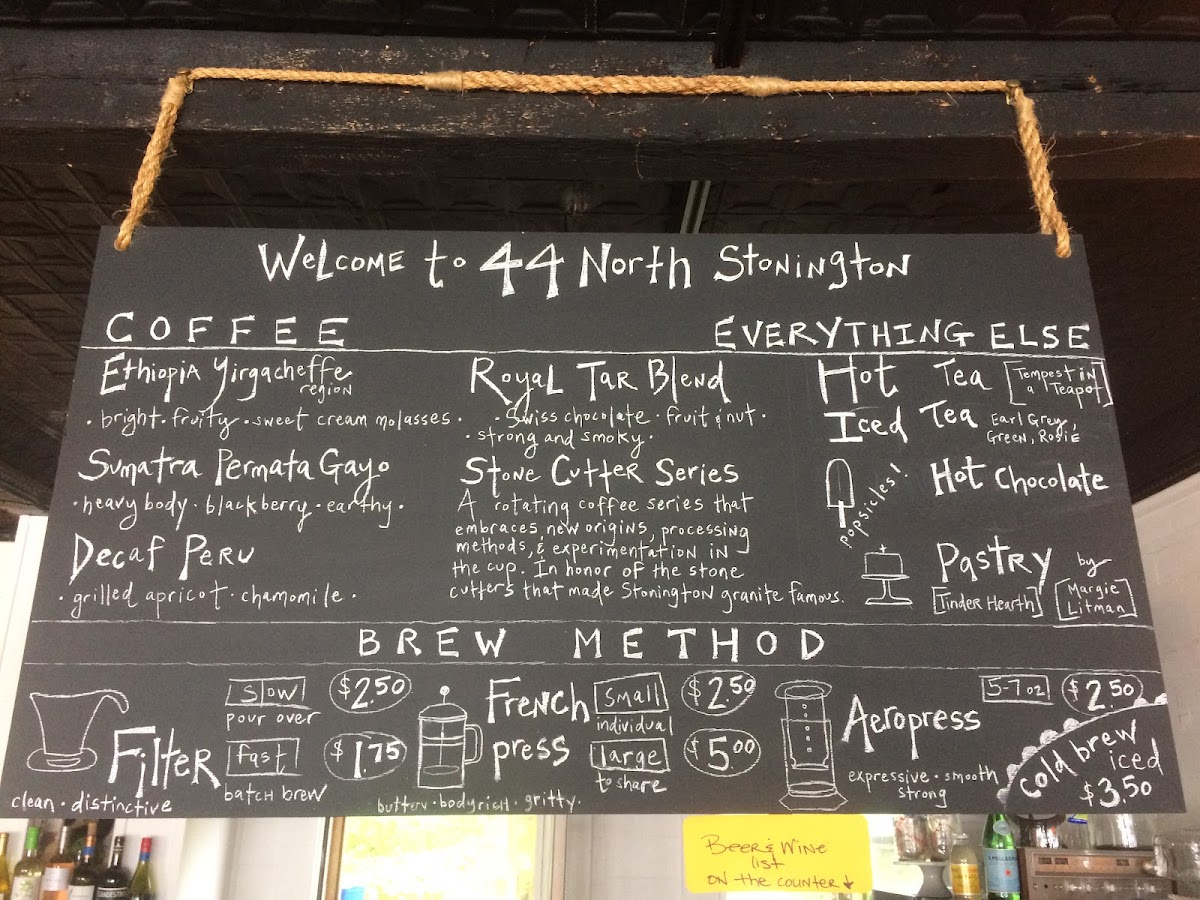 Welcome to 44 North Stonington
COFFEE
Ethiopia Yirgacheffe
region
· bright · fruity · sweet cream molasses ·
Sumatra Permata Gayo
· heavy body · blackberry · earthy ·
Decaf Peru
· grilled apricot · chamomile ·
Royal Tar Blend
· Swiss chocolate · fruit & nut ·
· strong and smoky ·
Stone Cutter Series
A rotating coffee series that
embraces new origins, processing
methods, & experimentation in
the cup. In honor of the stone
cutters that made Stonington granite famous.
EVERYTHING ELSE
Hot Tea [Tempest in
a Teapot]
Iced Tea Earl Grey,
Green, Rosie
popsicles!
Hot Chocolate
Pastry by
[Tinder Hearth] [Margie
Litman]
BREW METHOD
Filter
slow $2.50
pour over
fast $1.75
batch brew
clean · distinctive
French
press
small $2.50
individual
large $5.00
to share
buttery · bodyrich · gritty ·
Aeropress
5-7 oz $2.50
expressive · smooth
strong
Cold brew
iced
$3.50
Beer & Wine
list
on the counter ↓